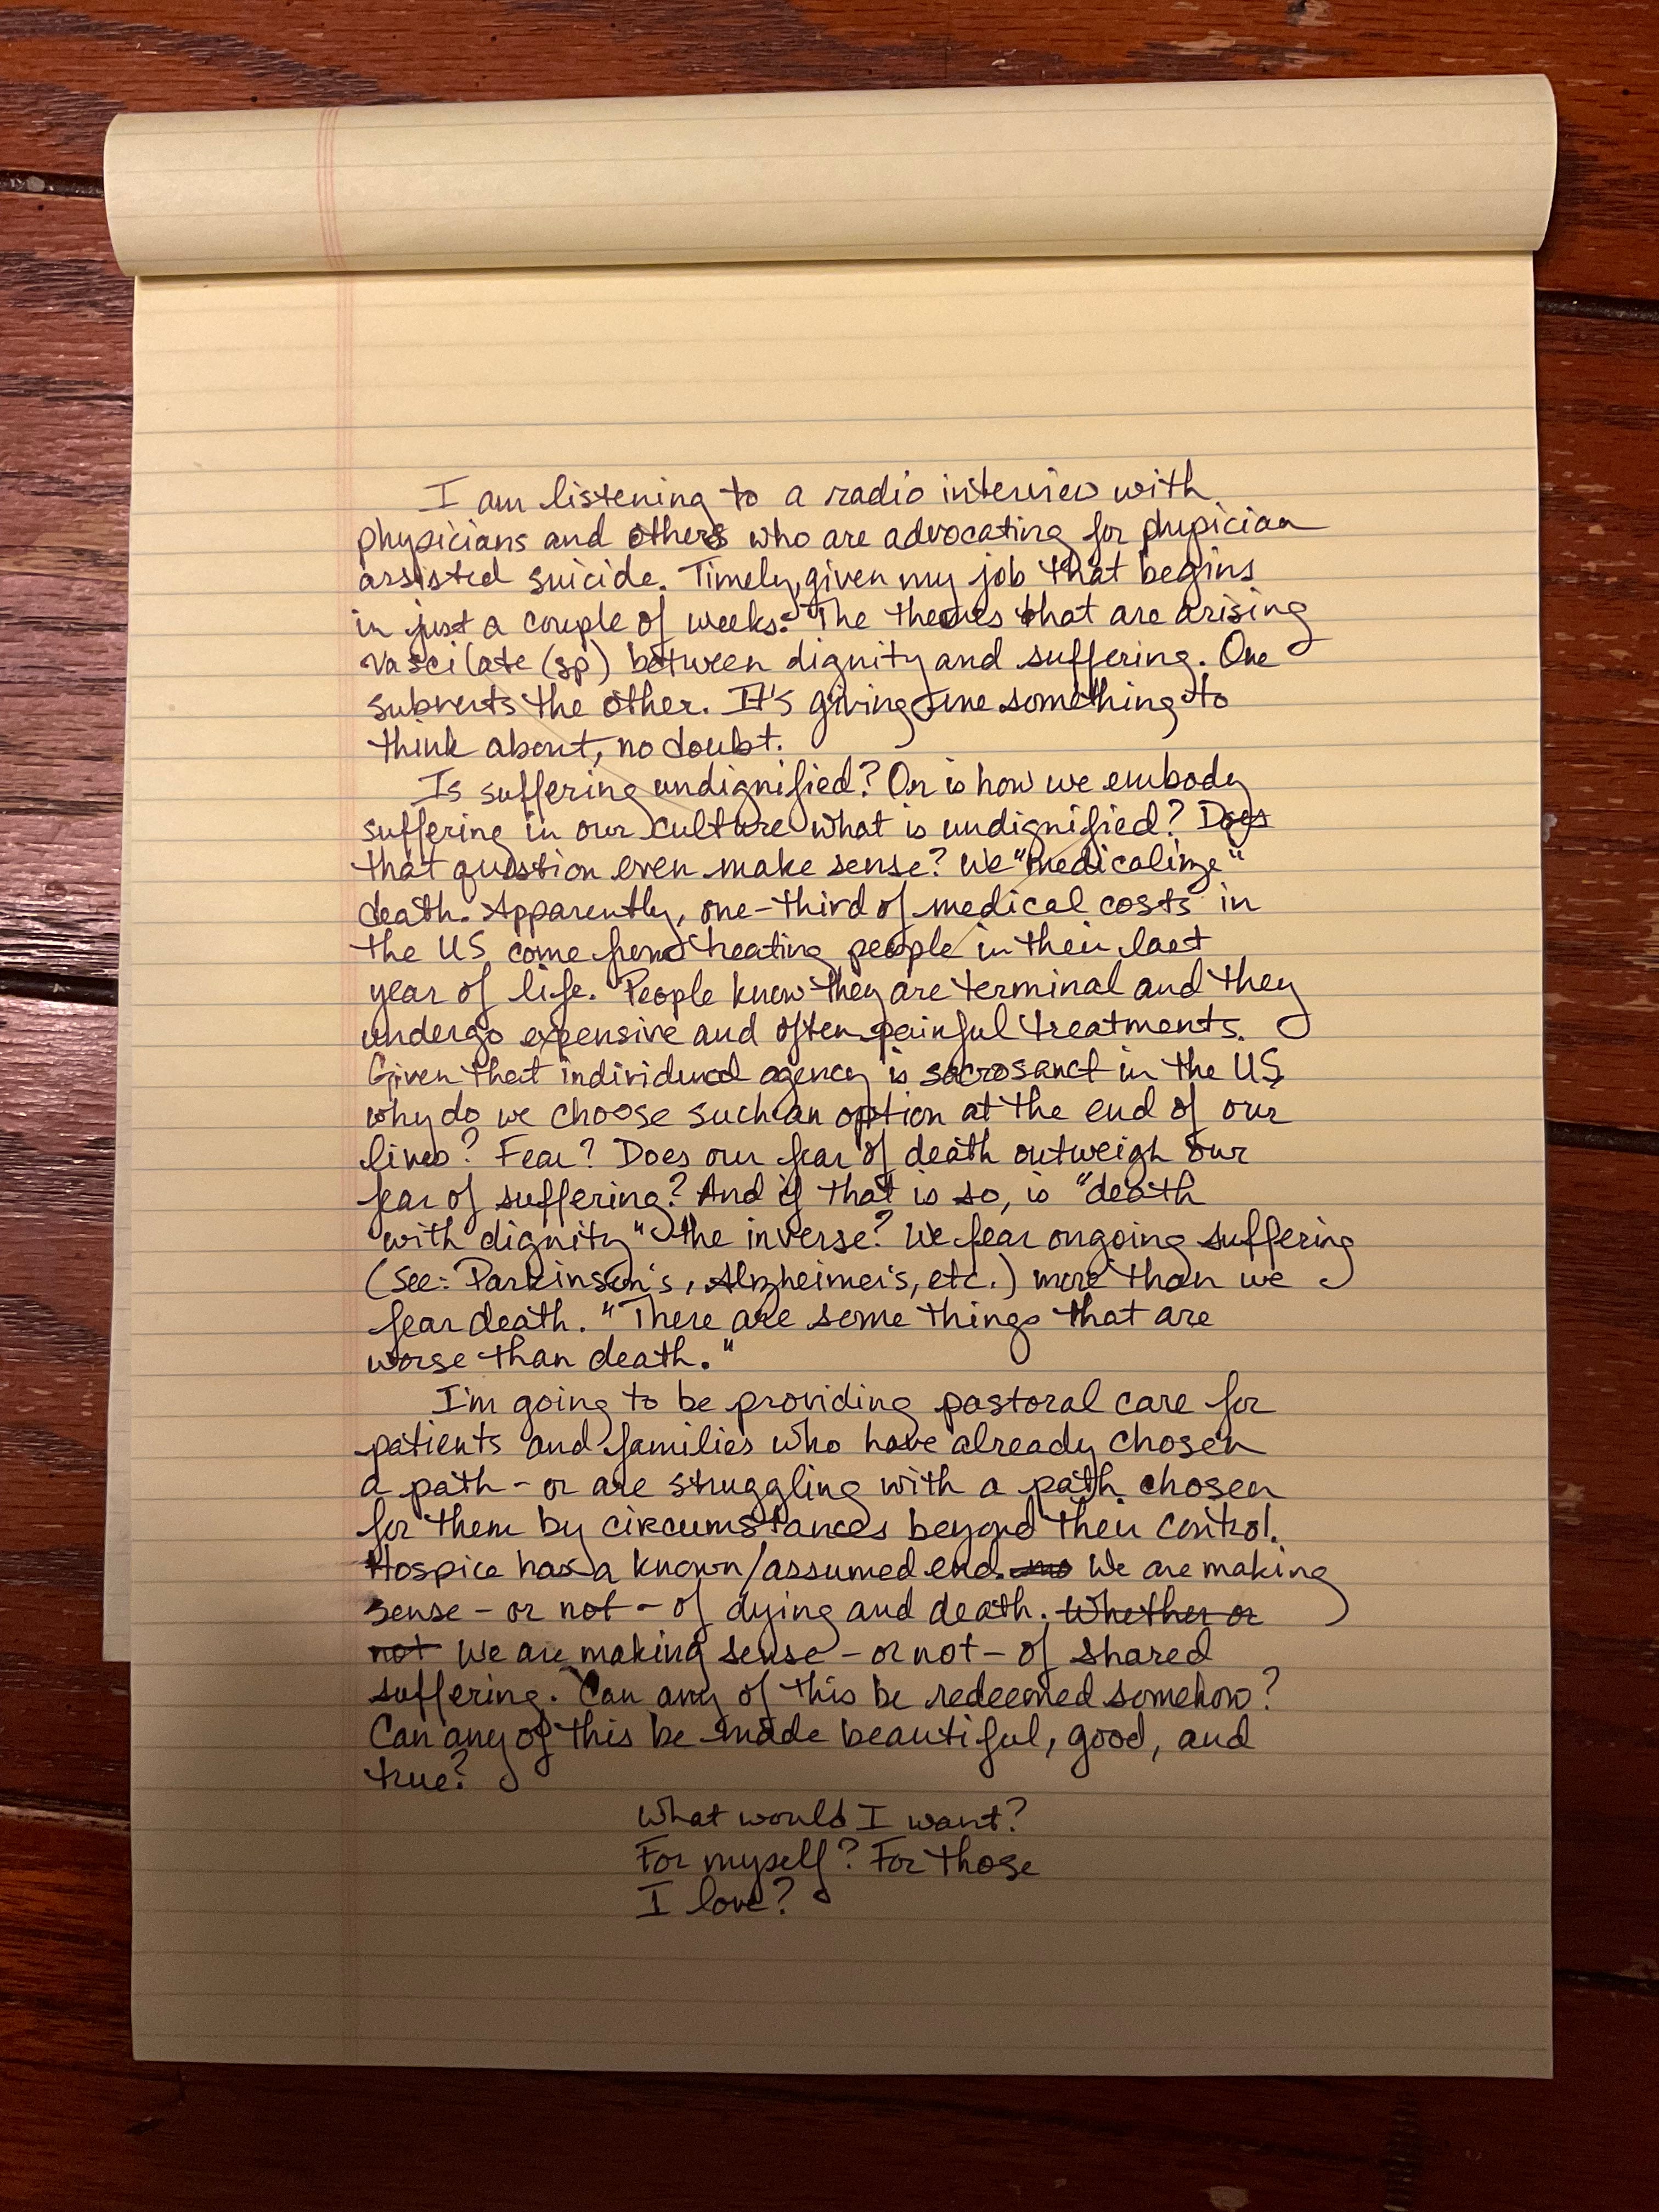 I am listening to a radio interview with
physicians and others who are advocating for physician
assisted suicide. Timely, given my job that begins
in just a couple of weeks. The themes that are arising
vascilate (sp) between dignity and suffering. One
subverts the other. It's giving me something to
think about, no doubt.
Is suffering undignified? Or is how we embody
suffering in our culture what is undignified? Does
that question even make sense? We "medicalize"
death. Apparently, one-third of medical costs in
the US come from treating people in their last
year of life. People know they are terminal and they
undergo expensive and often painful treatments.
Given that individual agency is sacrosanct in the US
why do we choose such an option at the end of our
lives? Fear? Does our fear of death outweigh our
fear of suffering? And if that is so, is "death
with dignity" the inverse? We fear ongoing suffering
(see: Parkinson's, Alzheimer's, etc.) more than we
fear death. "There are some things that are
worse than death."
I'm going to be providing pastoral care for
patients and families who have already chosen
a path - or are struggling with a path chosen
for them by circumstances beyond their control.
Hospice has a known/assumed end. We are making
sense - or not - of dying and death. Whether or
not We are making sense - or not - of shared
suffering. Can any of this be redeemed somehow?
Can any of this be made beautiful, good, and
true?
What would I want?
For myself? For those
I love?